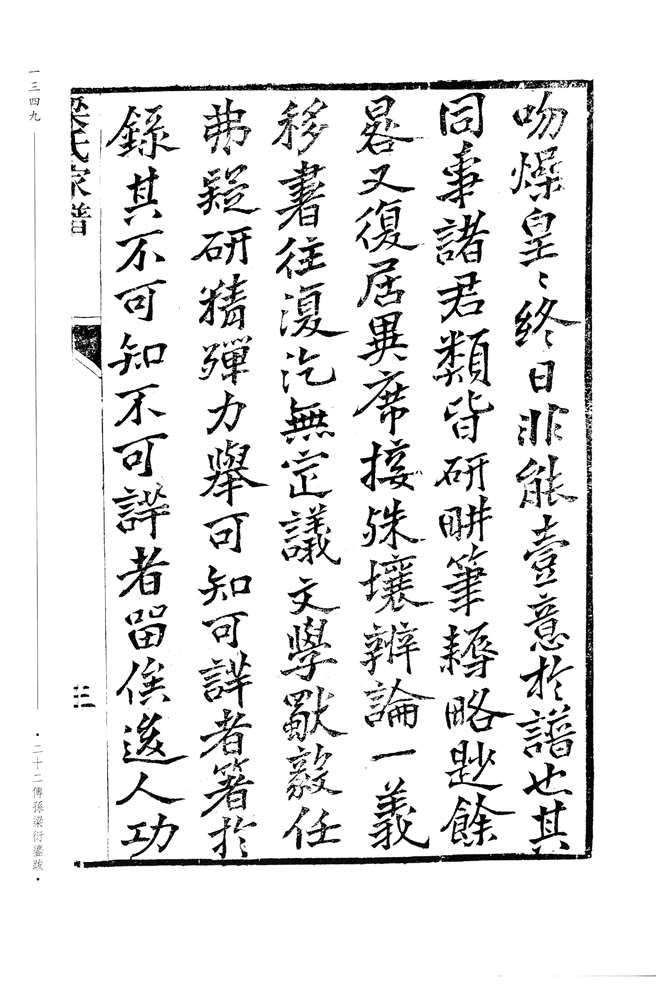 吻燥皇〻終日非能壹意於譜也其
同事諸君類皆研畊筆耨略尟餘
晷又復居異席接殊壤辨論一義
移書往復汔無定議文學獸毅任
弗疑研精殫力舉可知可譁者箸於
錄其不可知不可譁者畱俟逡人功
梁氏家譜
三
一三四九
·二十二傳孫梁衍鎏跋·